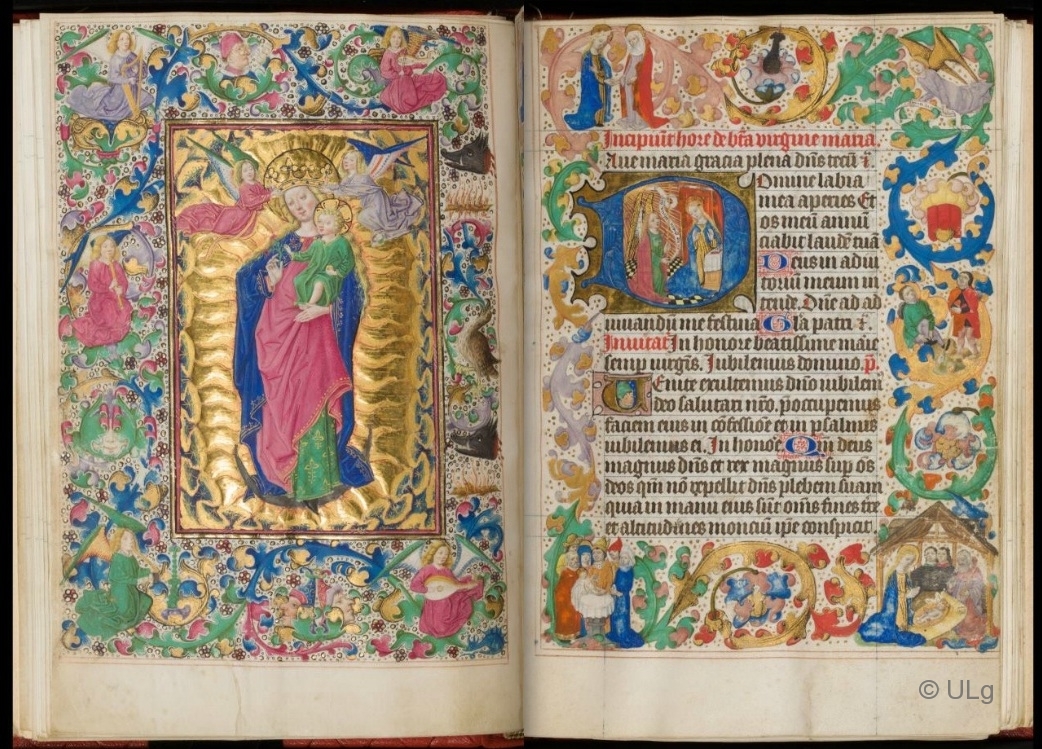 Incipiūt hore de bt̄a virgine maria.
Aue maria gracia plena dn̄s tecū ⁊.
Domine labia
mea aperies Et
os meū annūn
ciabit laudē tuā
Deus in adiu
toriū meum in
tende. Dn̄e ad ad
iuuandū me festina Gla patri ⁊.
Inuitat In honore beatissime marie
semꝑ virgīs. Iubilemus domino. p̄.
Uenite exultemus dn̄o iubilem
deo salutari nr̄o. p̄occupemus
faciem eius in cōfessiōe et in psalmis
iubilemus ei. In honore Qm̄ deus
magnus dn̄s et rex magnus sup̄ om̄s
deos qm̄ nō repellit dn̄s plebem suam
quia in manu eius sūt om̄s fines tre
et altitudines monciū ip̄e conspicit.
© ULg